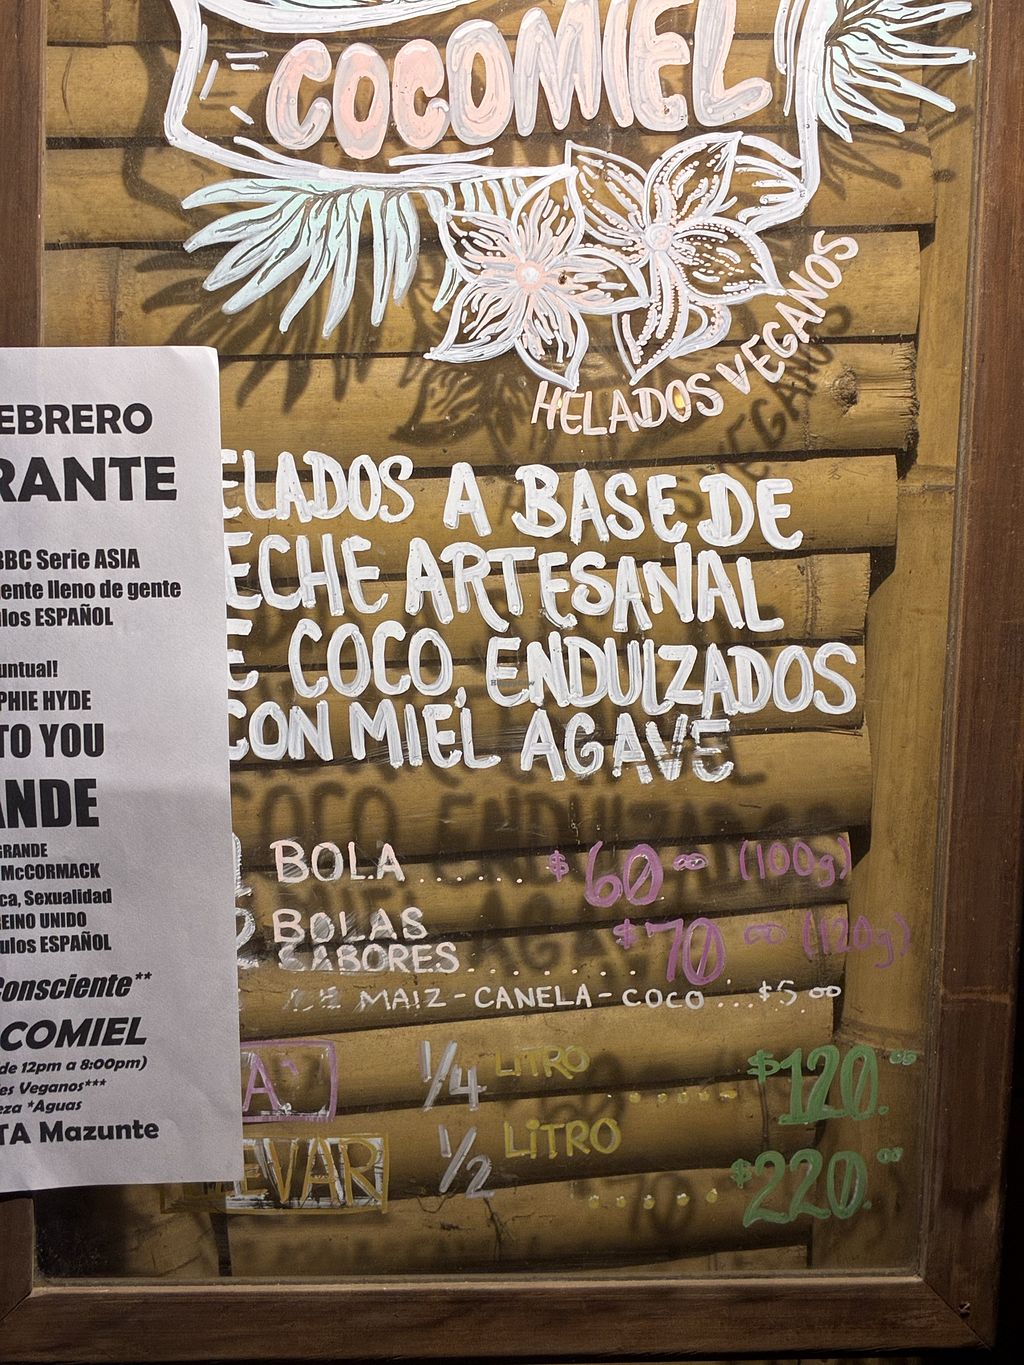 COCOMIEL
HELADOS VEGANOS
ELADOS A BASE DE
ECHE ARTESANAL
E COCO, ENDULZADOS
CON MIEL AGAVE
1 BOLA...... $60.00 (100g)
2 BOLAS
2 SABORES........ $70.00 (120g)
DE MAIZ-CANELA-COCO...$5.00
A' 1/4 LITRO ...... $120.00
LLEVAR 1/2 LITRO ...... $220.00
EBRERO
RANTE
BBC Serie ASIA
ente lleno de gente
ulos ESPAÑOL
untual!
PHIE HYDE
TO YOU
ANDE
GRANDE
McCORMACK
ca, Sexualidad
REINO UNIDO
ulos ESPAÑOL
Consciente**
COMIEL
de 12pm a 8:00pm)
es Veganos***
eza *Aguas
TA Mazunte